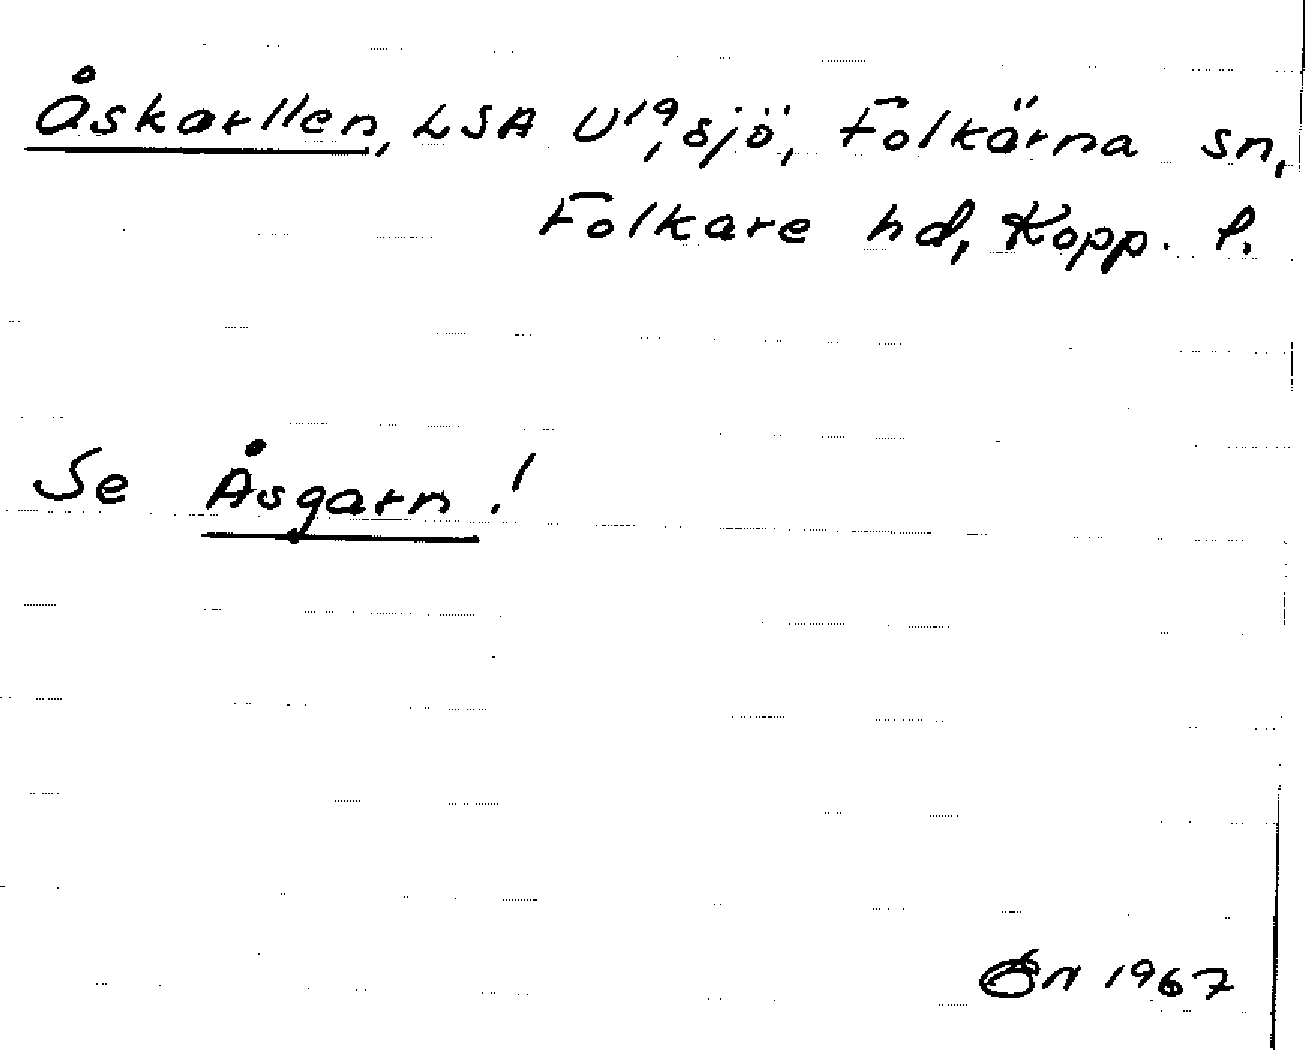 Åskarllen, LSA U19, sjö, Folkärna sn,
Folkare hd, Kopp. l.
Se Åsgarn!
1967